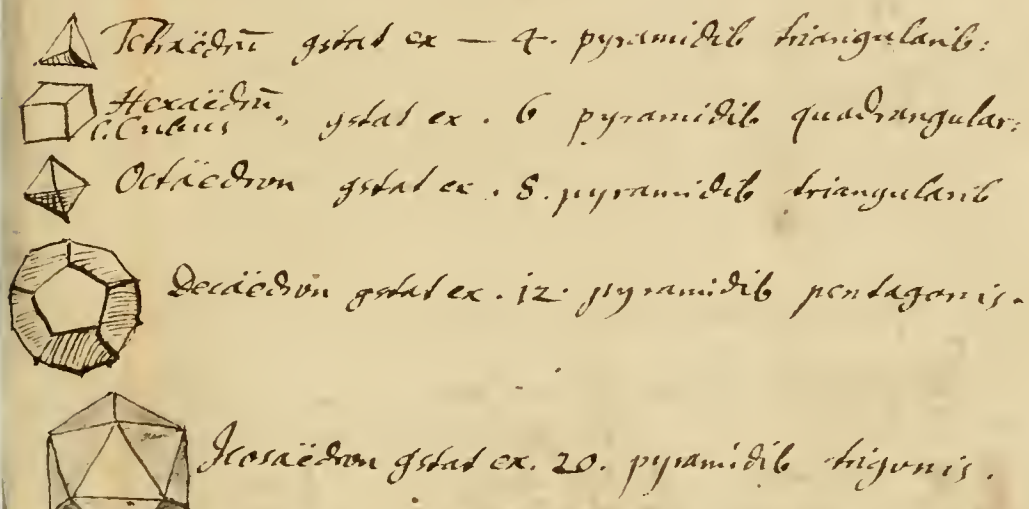 Tetraëdrū gstat ex — 4. pyramidib triangularib:
Hexaëdrū gstat ex . 6 pyramidib quadrangular:
C. Cubus
Octaëdron gstat ex . 8. pyramidib triangularib
Decaëdron gstat ex . 12. pyramidib pentagonis.
Icosaëdron gstat ex. 20. pyramidib trigonis.